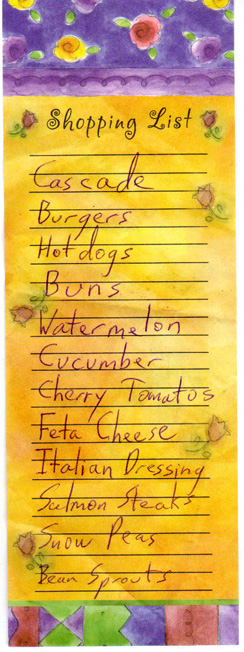 Shopping List
Cascade
Burgers
Hotdogs
Buns
Watermelon
Cucumber
Cherry Tomatos
Feta Cheese
Italian Dressing
Salmon Steaks
Snow Peas
Bean Sprouts